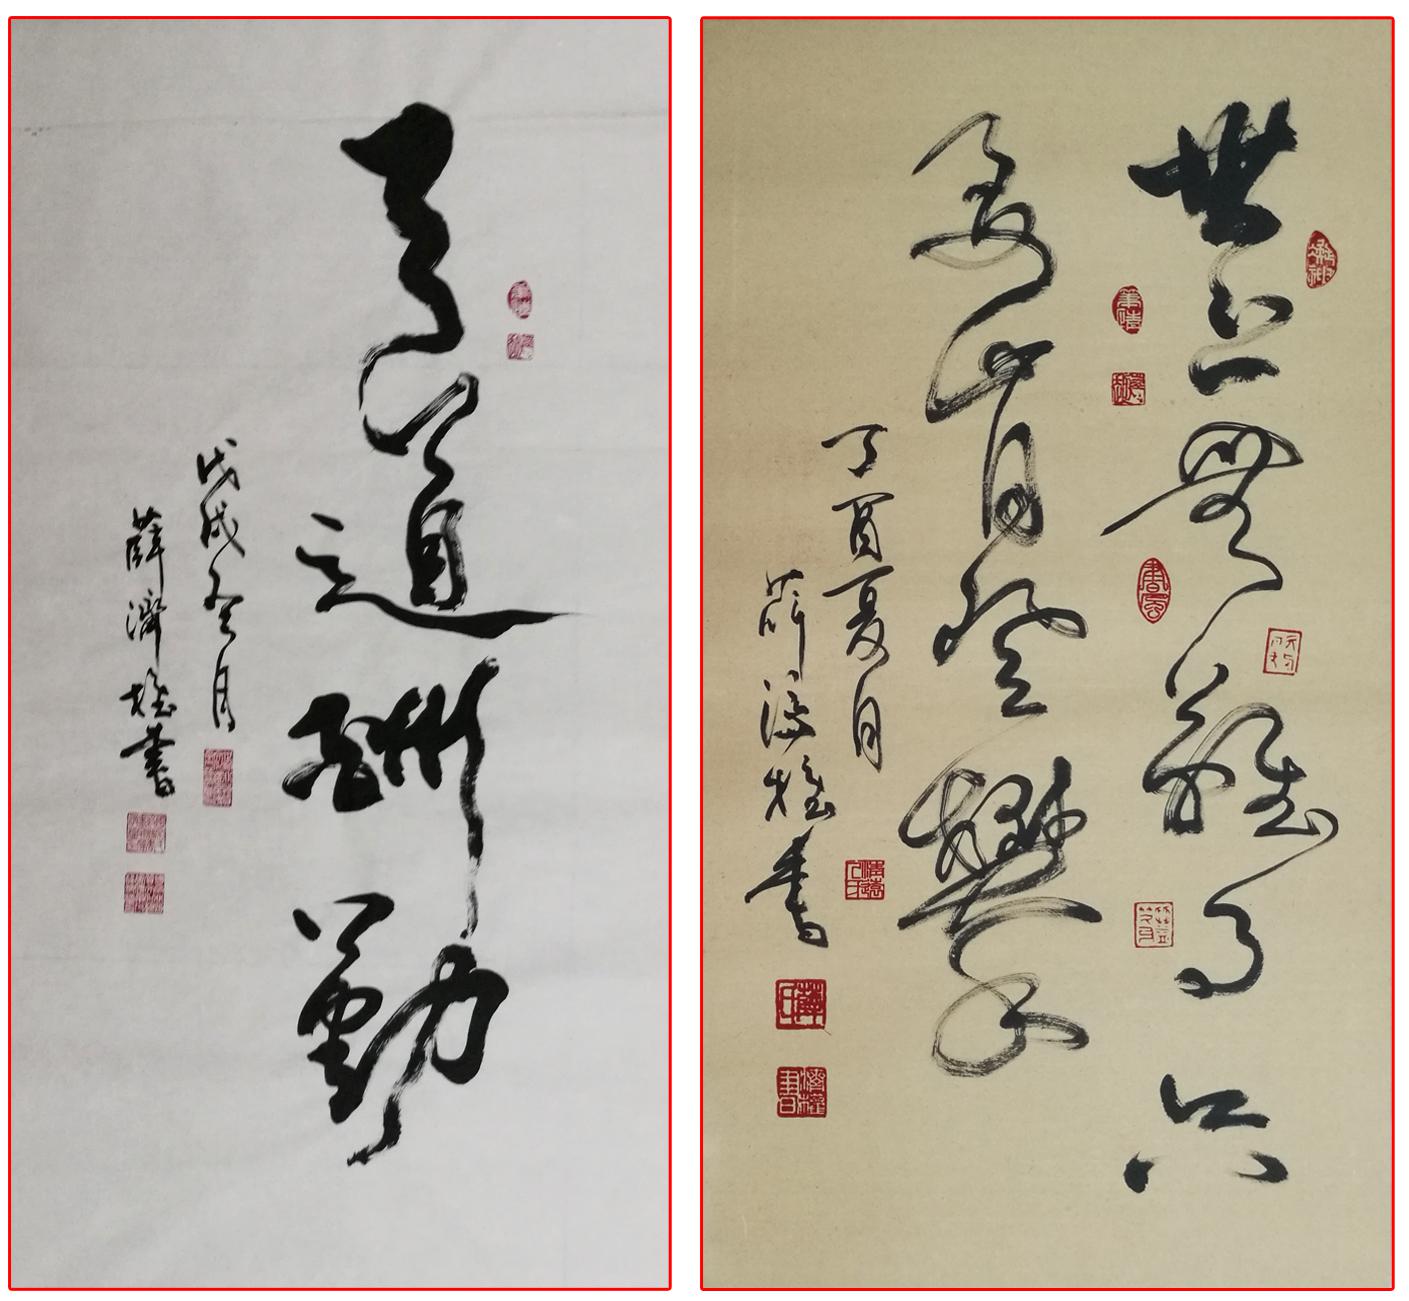 天道酬勤
戊戌冬月
薛濟書
世上無難事只
要肯登攀
丁酉夏月
薛濟書